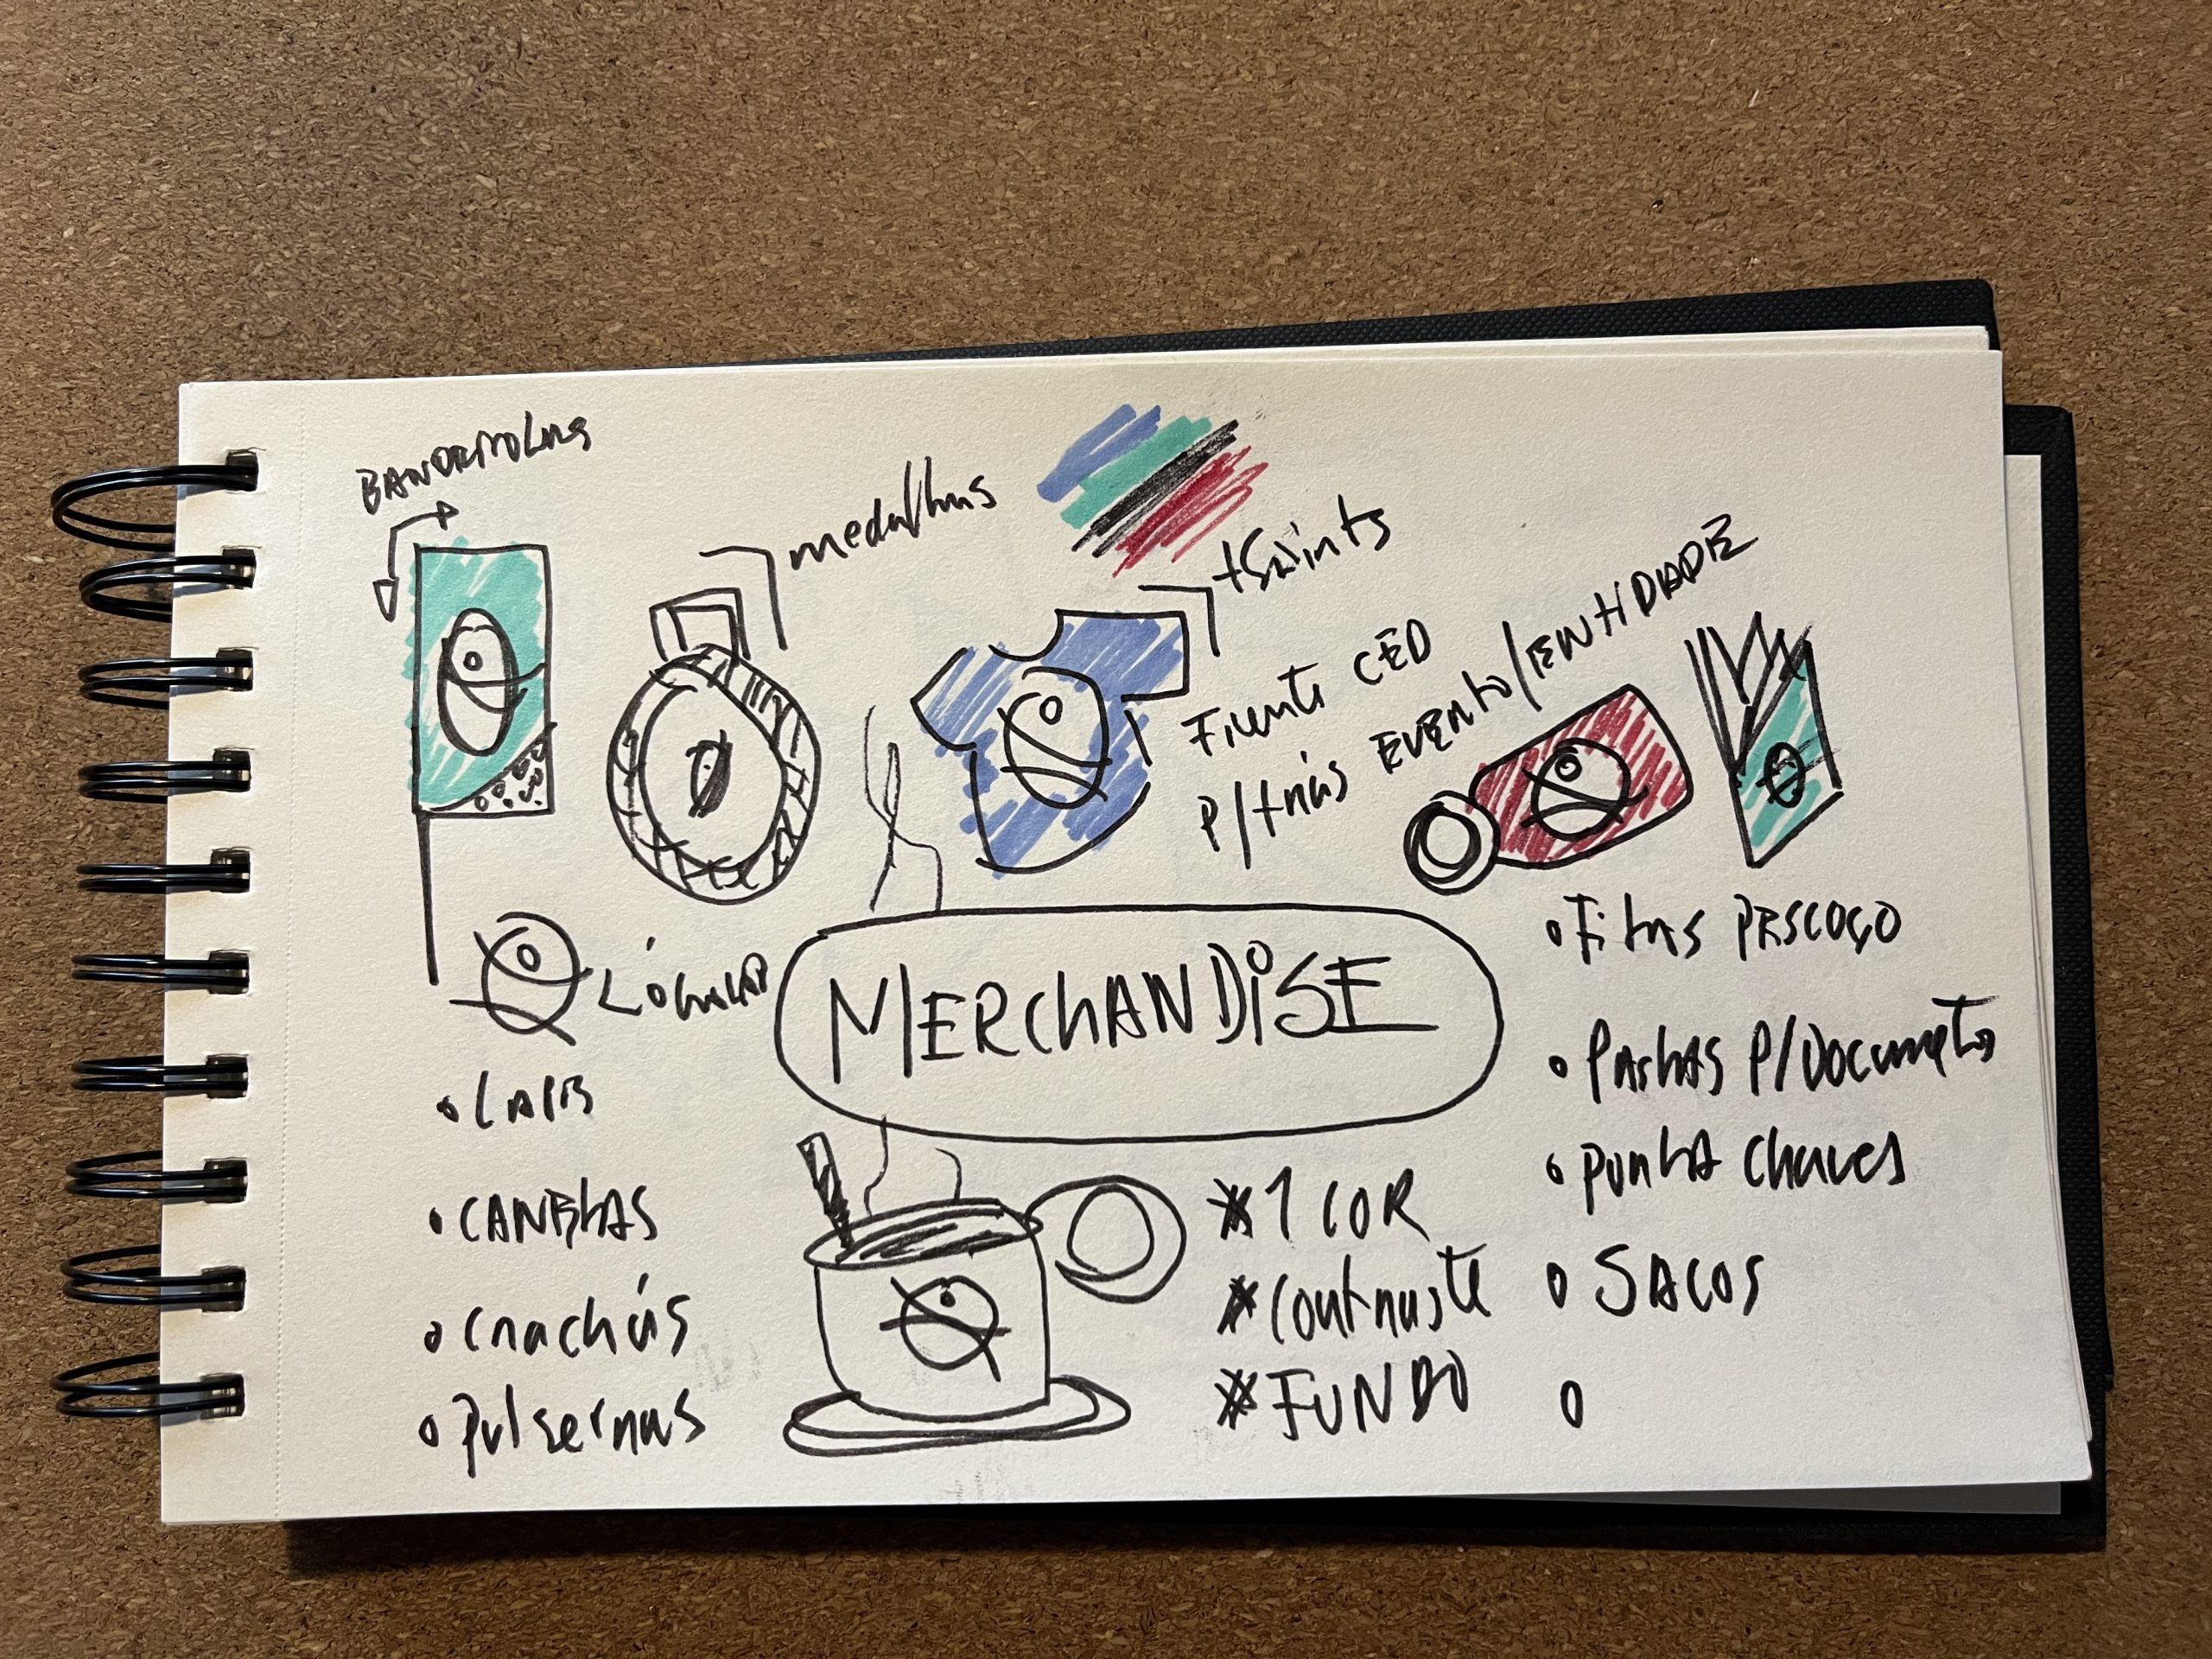 BANDEIROLAS
medalhas
tshirts
Frente CED
P/trás EVENTO/ENTIDADE
MERCHANDISE
• LAPIS
• CANETAS
• Crachás
• Pulseiras
* 1 COR
* Contraste
* FUNDO
• Fitas PESCOÇO
• PASTAS P/Documentos
• Porta Chaves
• SACOS
•